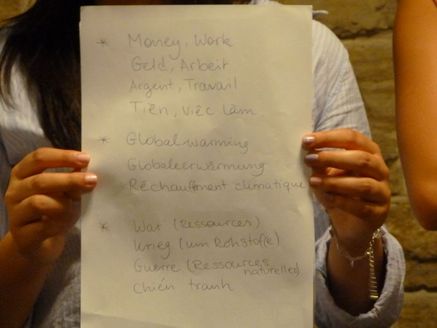 * Money, Work
Geld, Arbeit
Argent, Travail
Tiền, việc làm
* Global warming
Globaleerwärmung
Réchauffment climatique
* War (Ressources)
Krieg (um Rohstoffe)
Guerre (Ressources naturelles)
Chiến tranh